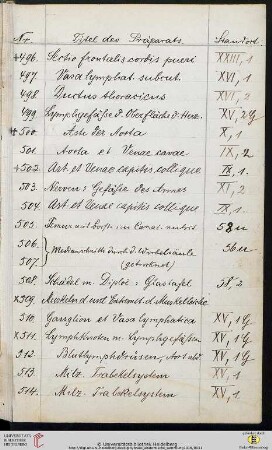 Nr. Titel des Präparats. Standort.
+496. Sectio frontalis cordis pueri XXIII, 1
497. Vasa lymphat. subcut. XVI, 1
498. Ductus thoracicus XV, 2
499. Lymphgefäße d. Oberfläche d. Herz. XV, 2 G
+500. Äste der Aorta X, 1
501. Aorta et Venae cavae IX, 2
+502. Art. et Venae capitis collique IX, 1.
503. Nerven u. Gefäße des Armes XI, 2
504. Art. et Venae capitis collique IX, 1.
505. 58 u
506. Medianschnitt durch d. Wirbelsäule 36 u
507. (getrocknet)
508. Schädel m. Diploë: Glastafel 38, 2
X509. Muskeln d.
510. Ganglion et Vasa lymphatica XV, 1 G
X511. Lymphknoten m. Lymphgefäßen XV, 1 G
512. Blutlymphdrüsen, XV, 1 G
513. Milz. Trabekelsystem XV, 1
514. Milz. Trabekelsystem XV, 1.
UNIVERSITÄTS-BIBLIOTHEK HEIDELBERG
© Universitätsbibliothek Heidelberg